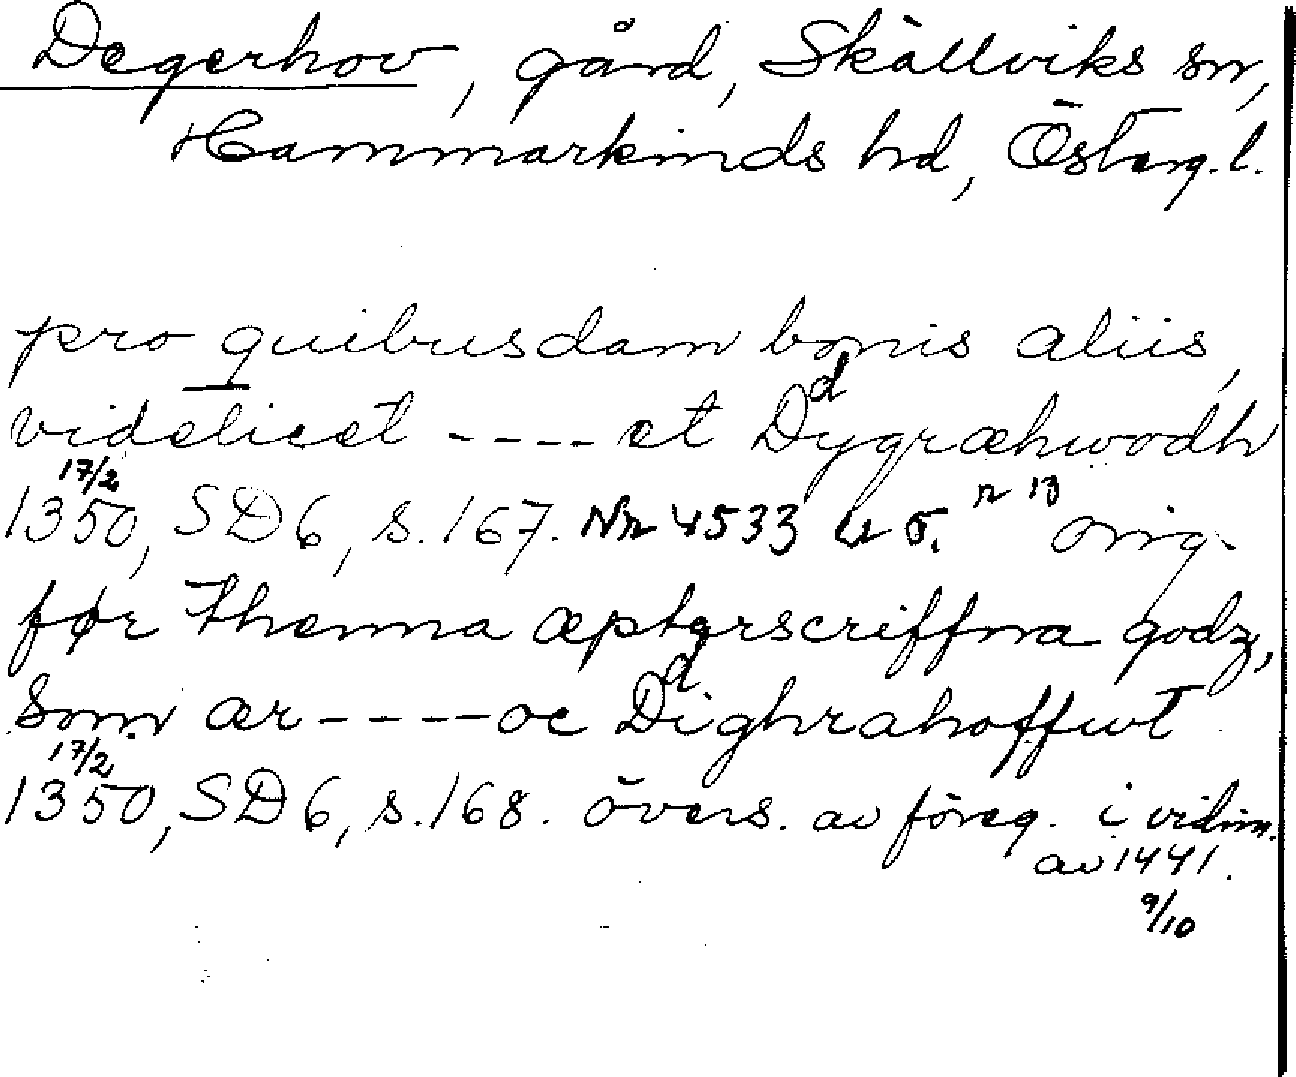 Degerhov, gård, Skällviks sn,
Hammarkinds hd, Österg.l.
pro quibusdam bonis aliis,
d
videlicet ---- et Dygræhwodh
17/2
1350, SD 6, s. 167. Nr 4533 orig.
før thenna æpterscriffna godz,
d
som ær ---- oc Dighrahoffwt
17/2
1350, SD 6, s. 168. övers. av föreg. i vidim.
av 1441.
9/10